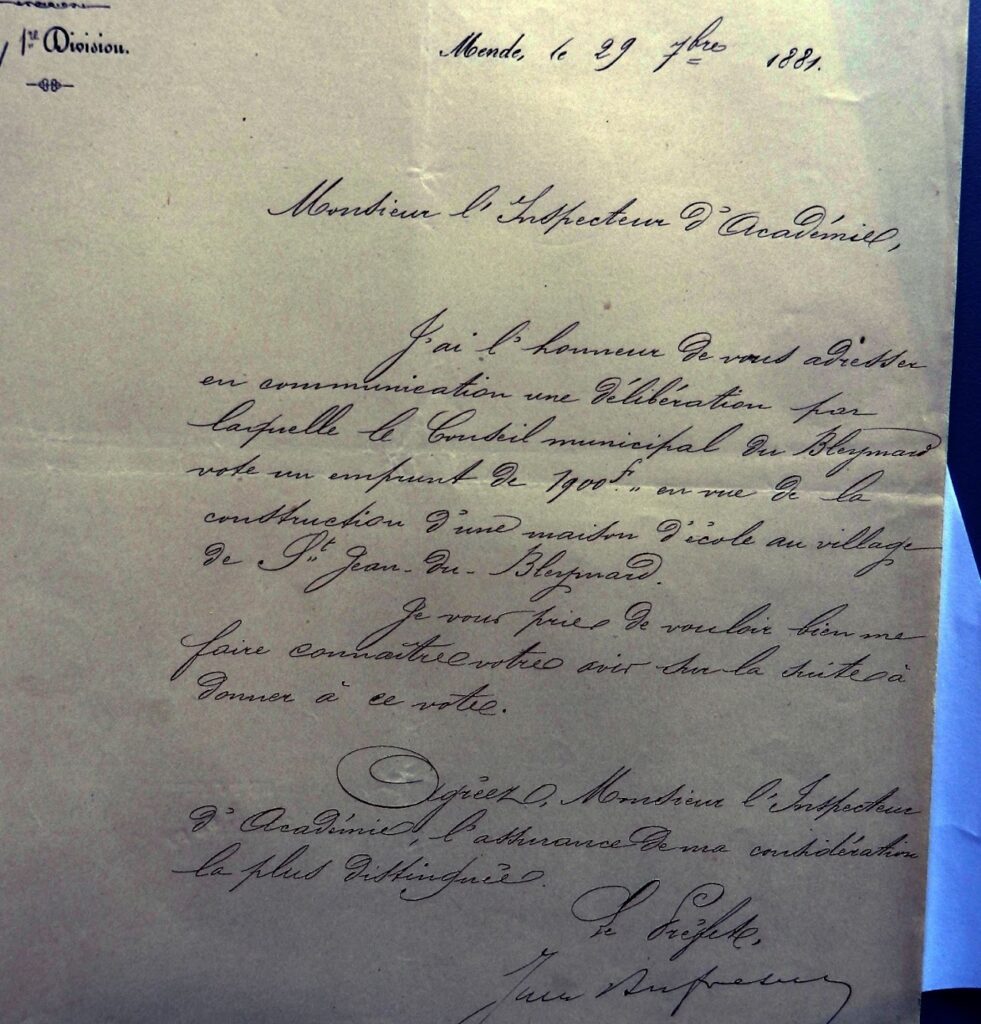 1re Division.
Mende, le 29 7bre 1881.
Monsieur l'Inspecteur d'Académie,
J'ai l'honneur de vous adresser
en communication une délibération par
laquelle le Conseil municipal du Bleymard
vote un emprunt de 1900f. " en vue de la
construction d'une maison d'école au village
de St Jean-du-Bleymard.
Je vous prie de vouloir bien me
faire connaître votre avis sur la suite à
donner à ce vote.
Agréez, Monsieur l'Inspecteur
d'Académie, l'assurance de ma considération
la plus distinguée.
Le Préfet,